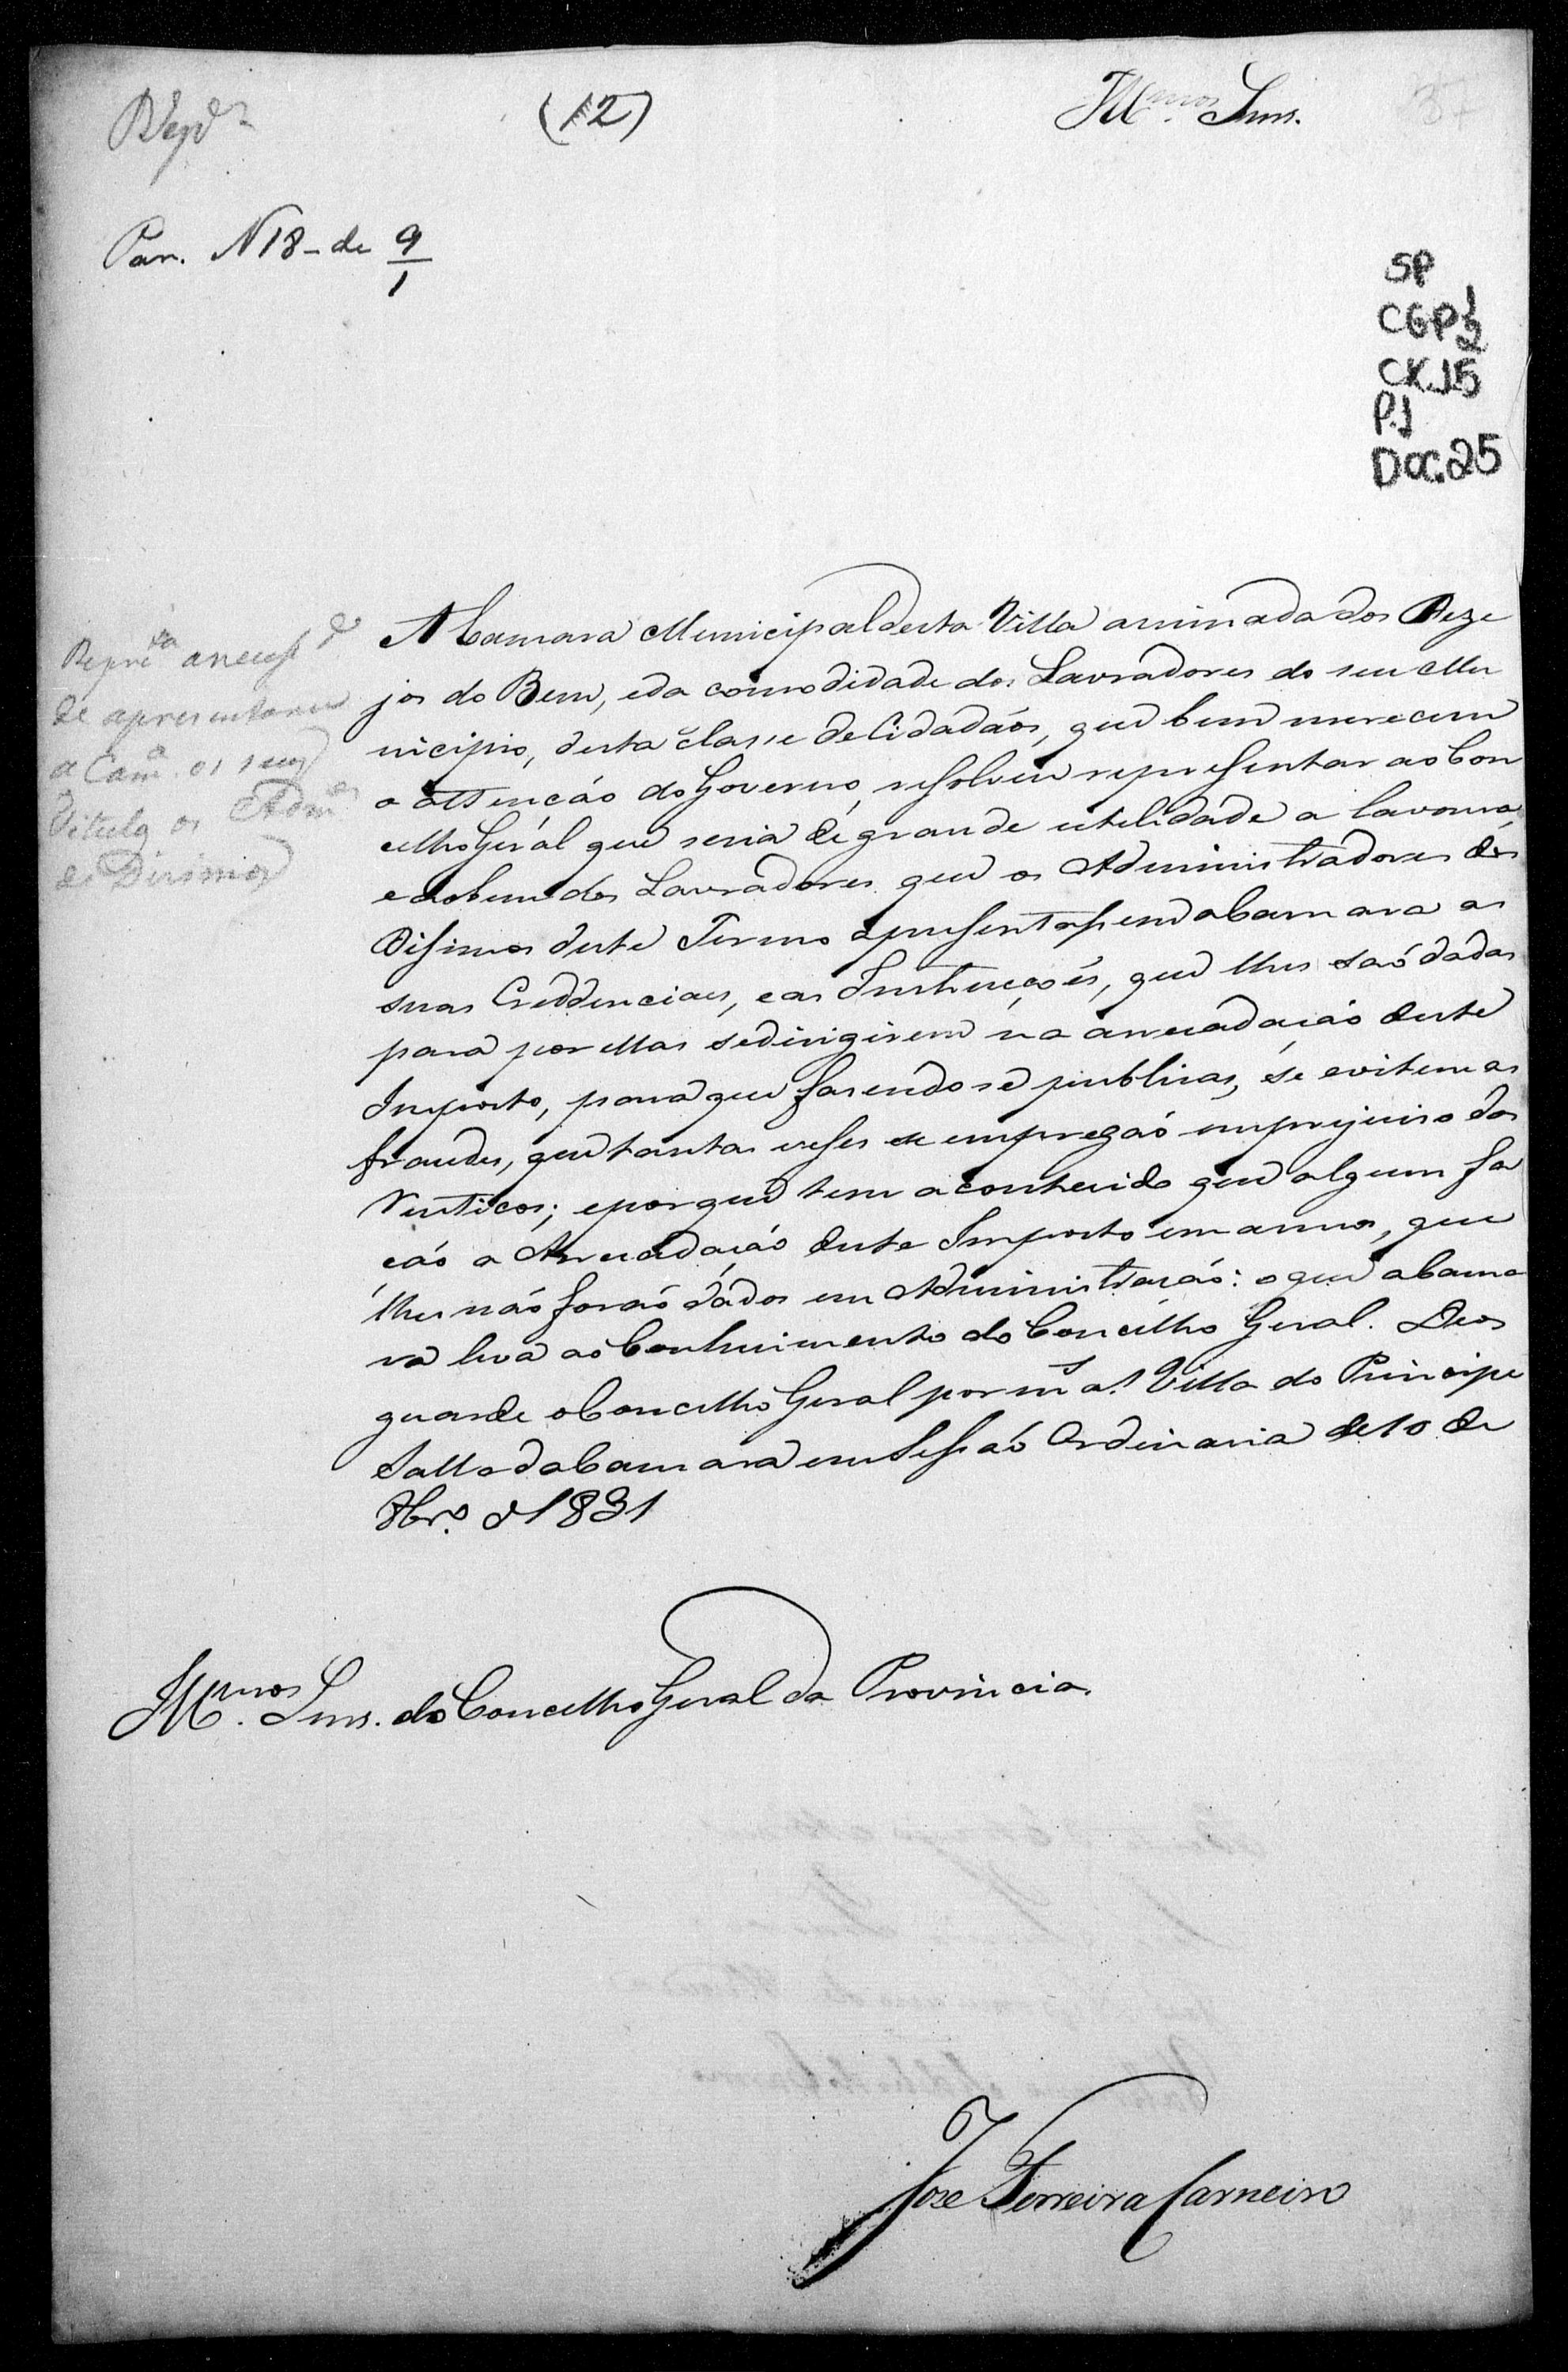 (12)
Ill.mos Snrs.
37
Par. N 18 - de 9/1
SP
CGP 1/2
CX. 15
P. 1
Doc. 25
Repre.ta a necess.de
de apresentarem
a Cam.a os seus
Titulos os Adm.es
de Disimos
A Camara Municipal desta Villa animada dos Deze
jos do Bem, e da comodidade dos Lavradores do seu Mu
nicipio, desta classe de Cidadaõs, que bem merecem
a attencáo do Governo, resolveu representar ao Con
celho Geral que seria de grande utelidade a lavoura,
e ao bem dos Lavradores que os Administradores dos
Disimos deste Termo apresentassem a Camara as
suas Creddenciaes, e as Instrucçoẽs, que lhes saõ dadas
para por ellas se dirigirem na arrecadaçáo deste
Imposto, para que fasendo-se publicas, se evitem as
fraudes, que tantas veses se empregaõ em prejuiso dos
Rusticos; e porque tem acontecido que algum fa
cáo a Arrecadaçáo deste Imposto em annos, que
lhes náo foraõ dádos em Administraçáo: o que a Cama
ra leva ao Conhecimento do Concelho Geral. Deos
guarde o Concelho Geral por m.s a.s Villa do Principe
Salla da Camara em Sessaõ Ordinaria de 10 de
8br.o d 1831
Ill.mos Snrs. do Concelho Geral da Provincia.
Jose Ferreira Carneiro